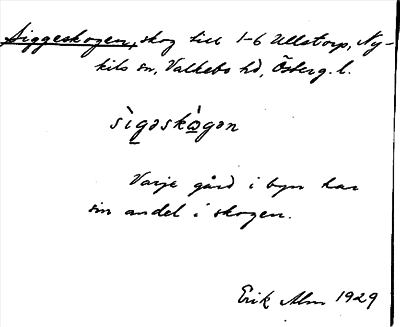 Siggeskogen, skog till 1-6 Ullstorp, Ny-
kils sn, Valkebo hd, Österg. l.
sìgəskò̱gən
Varje gård i byn har
sin andel i skogen.
Erik Alm 1929